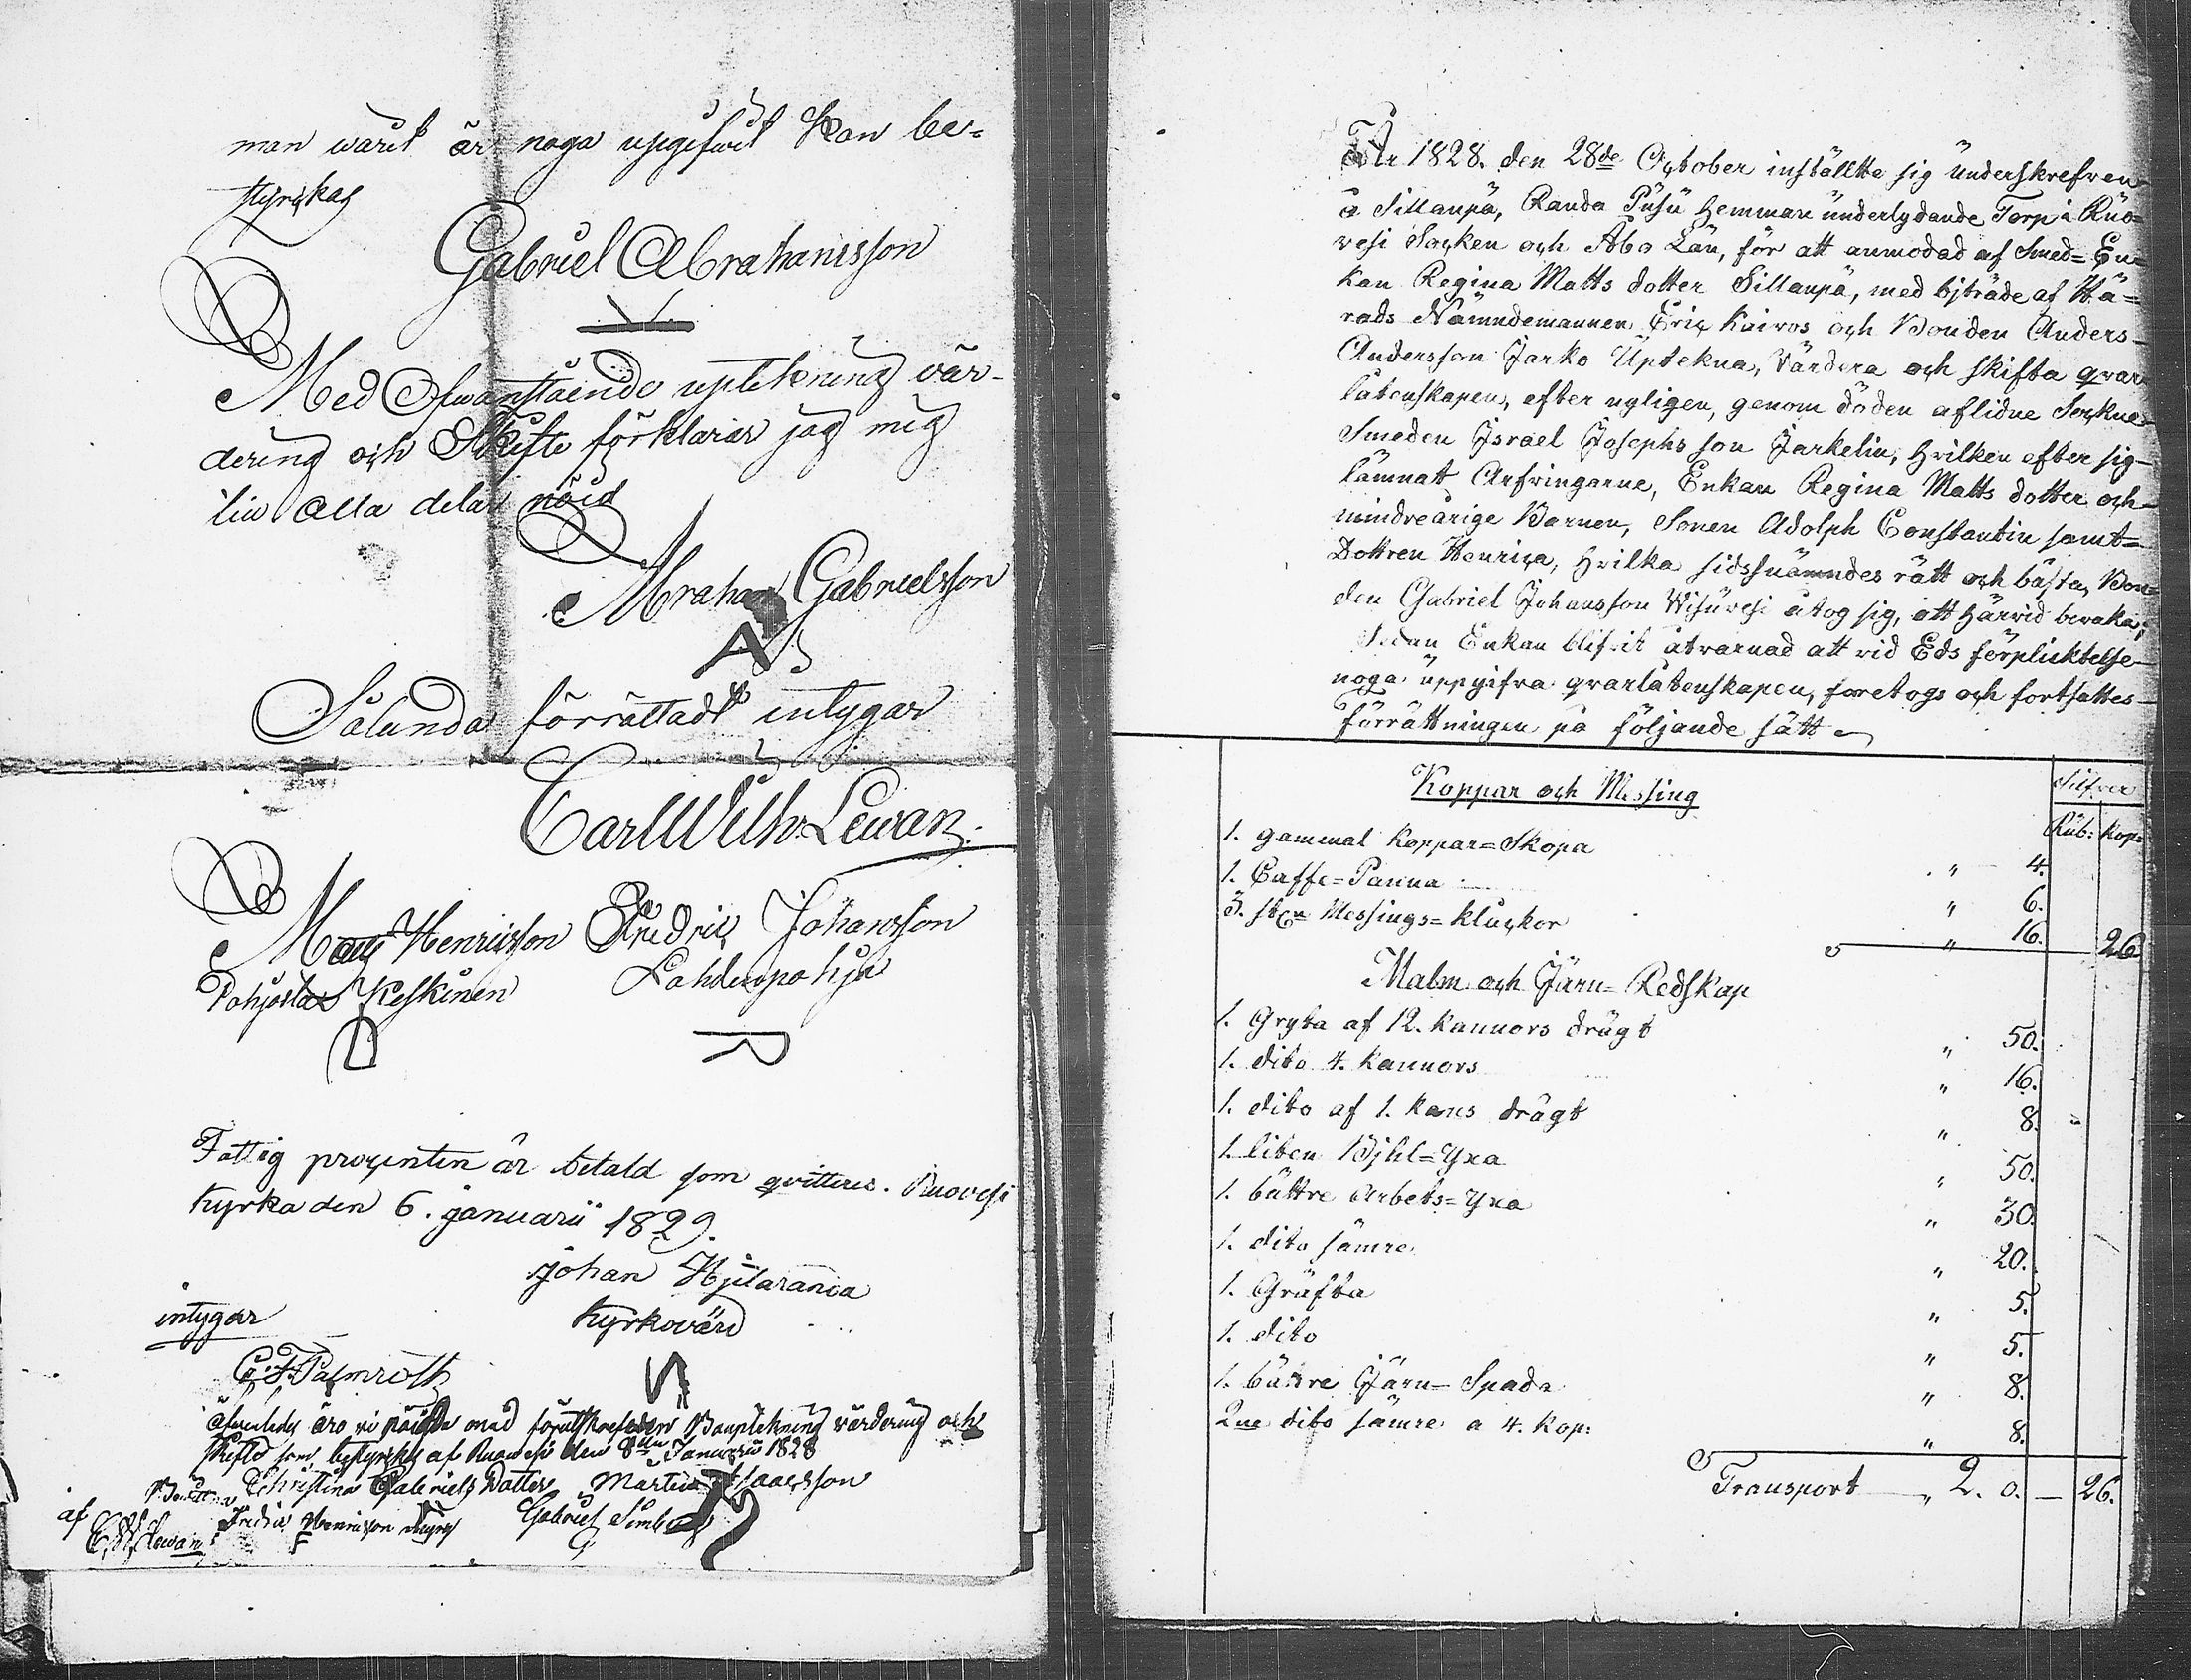 man warit är noga uppgifwit kan be=
styrckas
Gabriel Abrahamsson
Med Ofwanstående uptekning vär-
dering och Skifte förklarar jag mig
till alla delar nöjd
Abraham Gabrielsson
A
Sålunda förrättadt intygar
Carl Wilh. Lewan.
Matts Henricsson Fredric Johansson
Pohjostas Keskinen Lahdenpohja
Fattig procenten är betald som qvitteres. Ruovesi
kyrka den 6. januarii 1829.
Johan Hjilaranda
intygar kyrkovärd
C. F. Palmroth
äfwenledes äro vi nöjda med förutskrefwen Bouptekning värdering och
skifte som bestyrckes af Ruowesi den 8de Januarii 1828
Christina Gabriels Dotter Martin Isaacsson
af Fredric Henricsson Gabriel Simb
C. W. Lewan
År 1828. den 28de October inställte sig underskrefven
å Sillanpä, Randa Pusu Hemman underlydande Torp i Ruo=
vesi Socken och Åbo Län, för att anmodad af Smed=En=
kan Regina Matts dotter Sillanpä, med bjträde af Hä=
rads Nämndemannen Eric Kairos och Bonden Anders
Andersson Jarko Uptekna, Värdera och skifta qvar
låtenskapen, efter nyligen, genom döden aflidne Sockne
Smeden Israel Josephs son Jarkelin, Hvilken efter sig
lämnatt Arfvingarne, Enkan Regina Matts dotter och
mindreårige Barnen, Sonen Adolph Constantin samt
Dottren Henrica, Hvilka sidstnämndes rätt och bästa, Bon=
den Gabriel Johansson Visuvesi åtog sig, att härvid bevaka;
Sedan Enkan blifvit åtvarnad att vid Eds förplicktelse
noga uppgifva qvarlåtenskapen, foretogs och fortsattes
Förrättningen på följande sätt
Koppar och Messing Silfver
Rub: Kop:
1. gammal Koppar=Skopa " 4.
1. Caffe=Panna " 6.
3. st:n Messings=kluckor " 16. 26
Malm och Järn=Redskap
1. Gryta af 12. kannors drägt " 50.
1. dito 4. kannors " 16.
1. dito af 1. kans drägt " 8.
1. liten Bjhl=Yxa " 50.
1. bättre Arbets=Yxa " 30.
1. dito sämre " 20.
1. Gräfta " 5.
1. dito " 5.
1. bättre Järn=Spada " 8.
2ne dito sämre a 4. Kop: " 8.
Transport " 2. 0. 26.